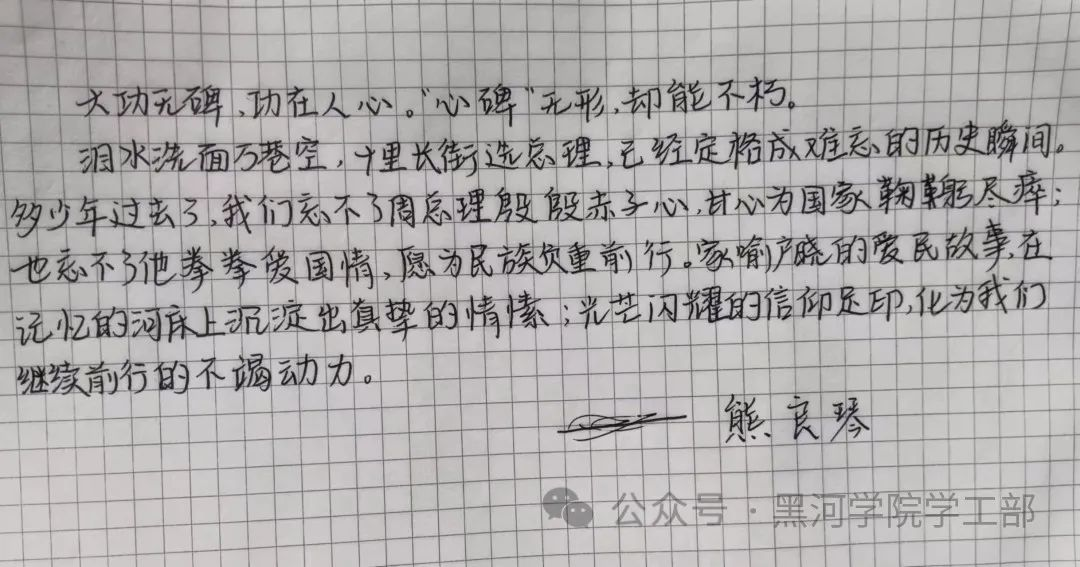 大功无碑,功在人心。“心碑”无形,却能不朽。
泪水洗面万巷空,十里长街送总理,已经定格成难忘的历史瞬间。
多少年过去了,我们忘不了周总理殷殷赤子心,甘心为国家鞠躬尽瘁;
也忘不了他拳拳爱国情,愿为民族负重前行。家喻户晓的爱民故事,在
记忆的河床上沉淀出真挚的情愫;光芒闪耀的信仰足印,化为我们
继续前行的不竭动力。
熊良琴
公众号·黑河学院学工部